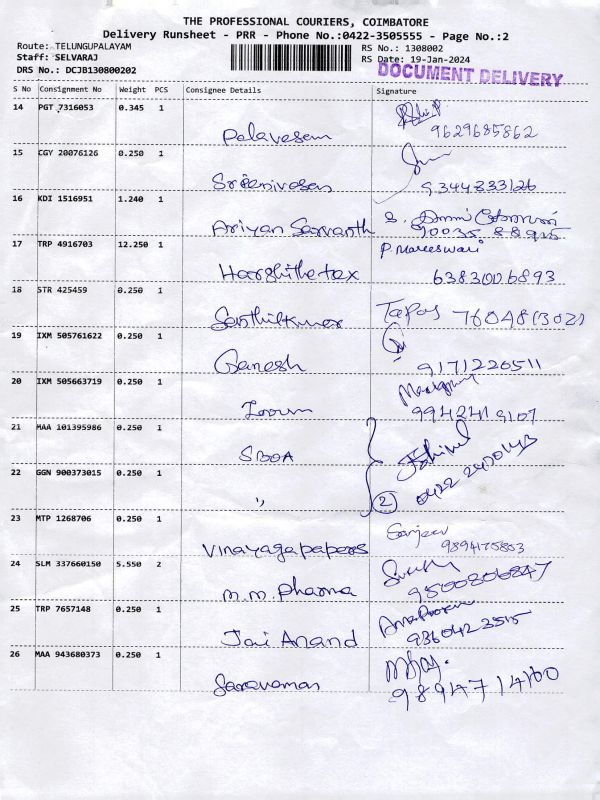 THE PROFESSIONAL COURIERS, COIMBATORE
Delivery Runsheet - PRR - Phone No.:0422-3505555 - Page No.:2
Route: TELUNGUPALAYAM RS No.: 1308002
Staff: SELVARAJ RS Date: 19-Jan-2024
DRS No.: DCJB130800202 DOCUMENT DELIVERY
S No Consignment No Weight PCS Consignee Details Signature
14 PGT 7316053 0.345 1
Palavesem 9629685862
15 CGY 20076126 0.250 1
Srinivasan 9344833126
16 KDI 1516951 1.240 1
Ariyan Sarvanth
17 TRP 4916703 12.250 1 P Mareeswari
Harshithe tex 6383006893
18 STR 425459 0.250 1
Senthilkumar Tapas
19 IXM 505761622 0.250 1
Ganesh 9171226511
20 IXM 505663719 0.250 1
Zoom 9942419107
21 MAA 101395986 0.250 1
22 GGN 900373015 0.250 1
〃 2
23 MTP 1268706 0.250 1 Sanjeev
Vinayaga papers 9894175803
24 SLM 337660150 5.550 2
m.m. pharma 9500806847
25 TRP 7657148 0.250 1
Jai Anand 9360423515
26 MAA 943680373 0.250 1
Saravanan 9894714160